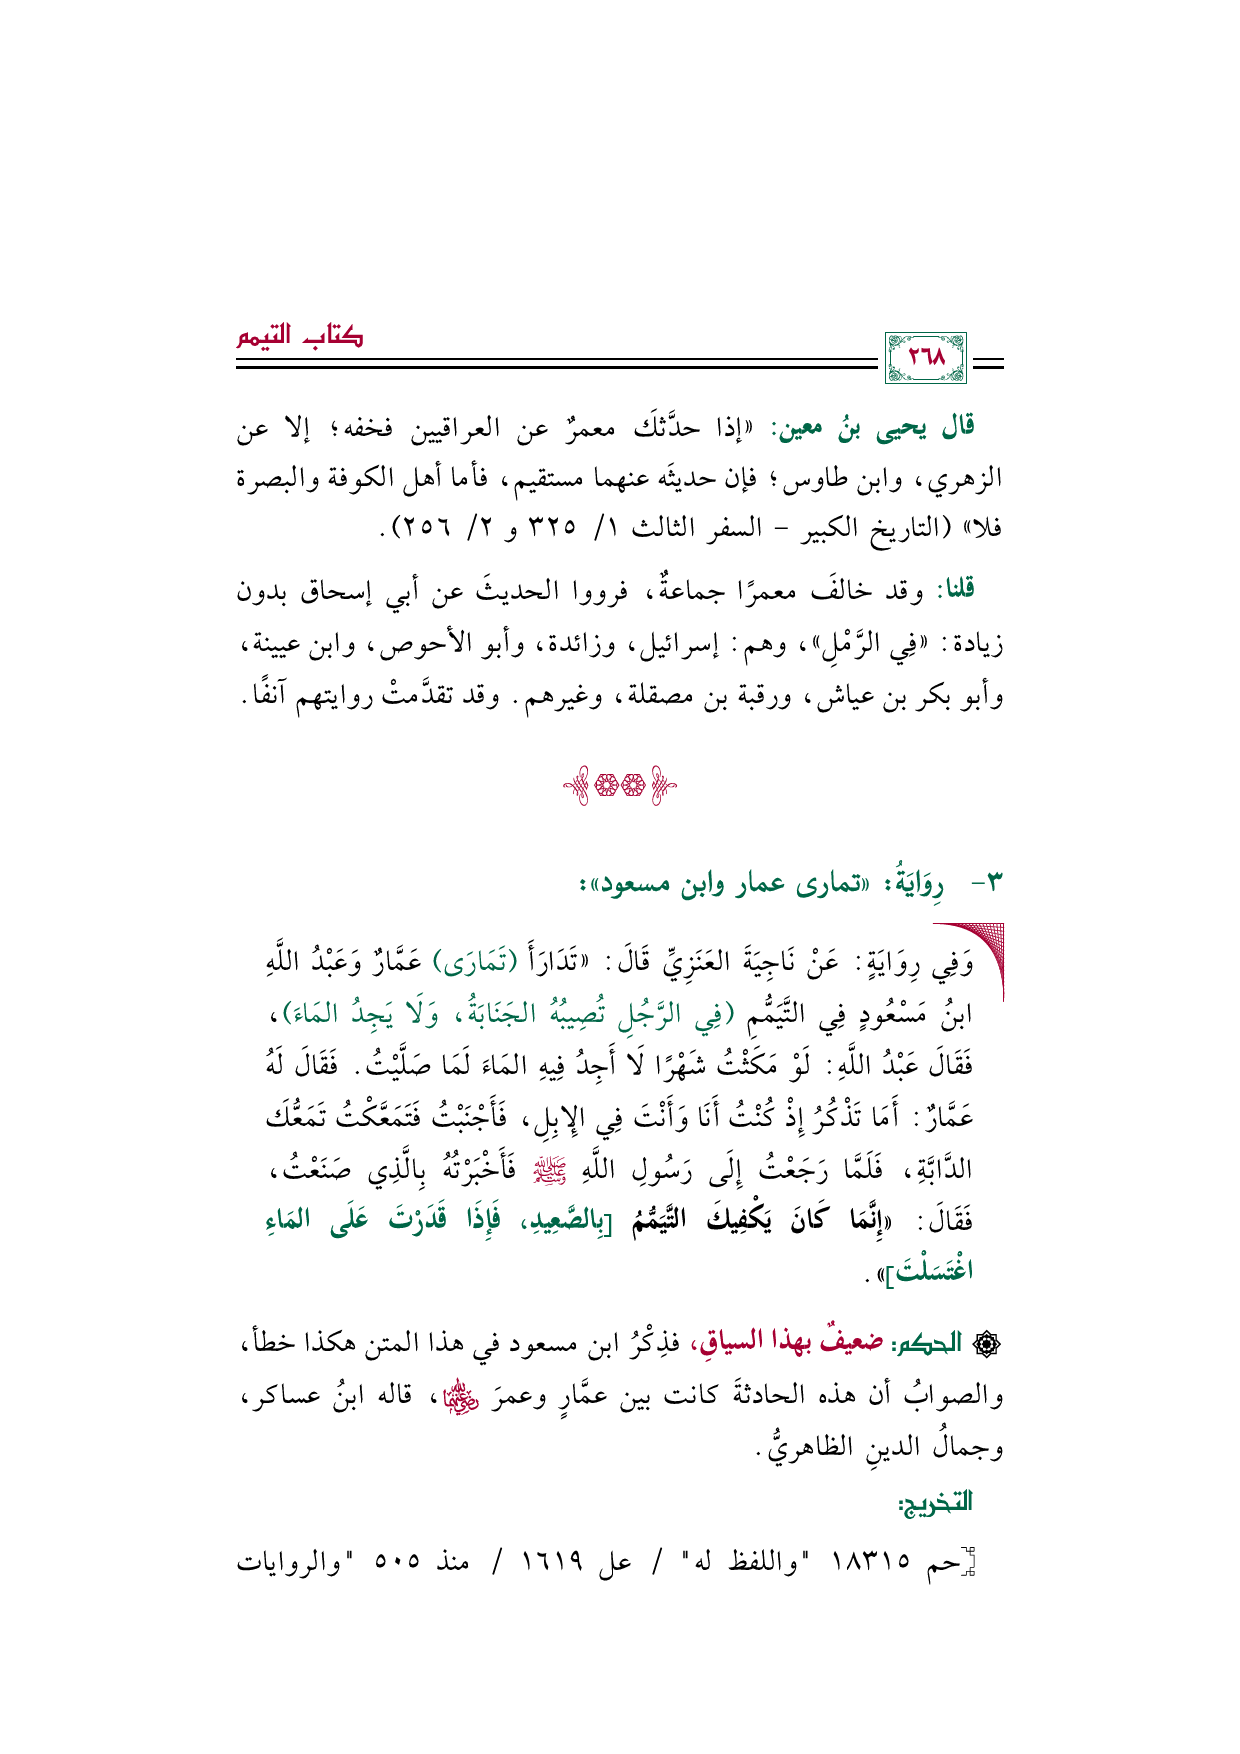 كتاب التيمم
٢٦٨
قال يحيى بنُ معين: «إذا حدَّثكَ معمرٌ عن العراقيين فخفه؛ إلا عن
الزهري، وابن طاوس؛ فإن حديثَه عنهما مستقيم، فأما أهل الكوفة والبصرة
فلا» (التاريخ الكبير – السفر الثالث ١/ ٣٢٥ و ٢/ ٢٥٦).
قلنا: وقد خالفَ معمرًا جماعةٌ، فرووا الحديثَ عن أبي إسحاق بدون
زيادة: «فِي الرَّمْلِ»، وهم: إسرائيل، وزائدة، وأبو الأحوص، وابن عيينة،
وأبو بكر بن عياش، ورقبة بن مصقلة، وغيرهم. وقد تقدَّمتْ روايتهم آنفًا.
٣- رِوَايَةُ: «تمارى عمار وابن مسعود»:
وَفِي رِوَايَةٍ: عَنْ نَاجِيَةَ العَنَزِيِّ قَالَ: «تَدَارَأَ (تَمَارَى) عَمَّارٌ وَعَبْدُ اللَّهِ
ابنُ مَسْعُودٍ فِي التَّيَمُّمِ (فِي الرَّجُلِ تُصِيبُهُ الجَنَابَةُ، وَلَا يَجِدُ المَاءَ)،
فَقَالَ عَبْدُ اللَّهِ: لَوْ مَكَثْتُ شَهْرًا لَا أَجِدُ فِيهِ المَاءَ لَمَا صَلَّيْتُ. فَقَالَ لَهُ
عَمَّارٌ: أَمَا تَذْكُرُ إِذْ كُنْتُ أَنَا وَأَنْتَ فِي الإِبِلِ، فَأَجْنَبْتُ فَتَمَعَّكْتُ تَمَعُّكَ
الدَّابَّةِ، فَلَمَّا رَجَعْتُ إِلَى رَسُولِ اللَّهِ ﷺ فَأَخْبَرْتُهُ بِالَّذِي صَنَعْتُ،
فَقَالَ: «إِنَّمَا كَانَ يَكْفِيكَ التَّيَمُّمُ [بِالصَّعِيدِ، فَإِذَا قَدَرْتَ عَلَى المَاءِ
اغْتَسَلْتَ]».
الحكم: ضعيفٌ بهذا السياقِ، فذِكْرُ ابن مسعود في هذا المتن هكذا خطأ،
والصوابُ أن هذه الحادثةَ كانت بين عمَّارٍ وعمرَ رضي الله عنهما، قاله ابنُ عساكر،
وجمالُ الدينِ الظاهريُّ.
التخريج:
[حم ١٨٣١٥ "واللفظ له" / عل ١٦١٩ / منذ ٥٠٥ "والروايات